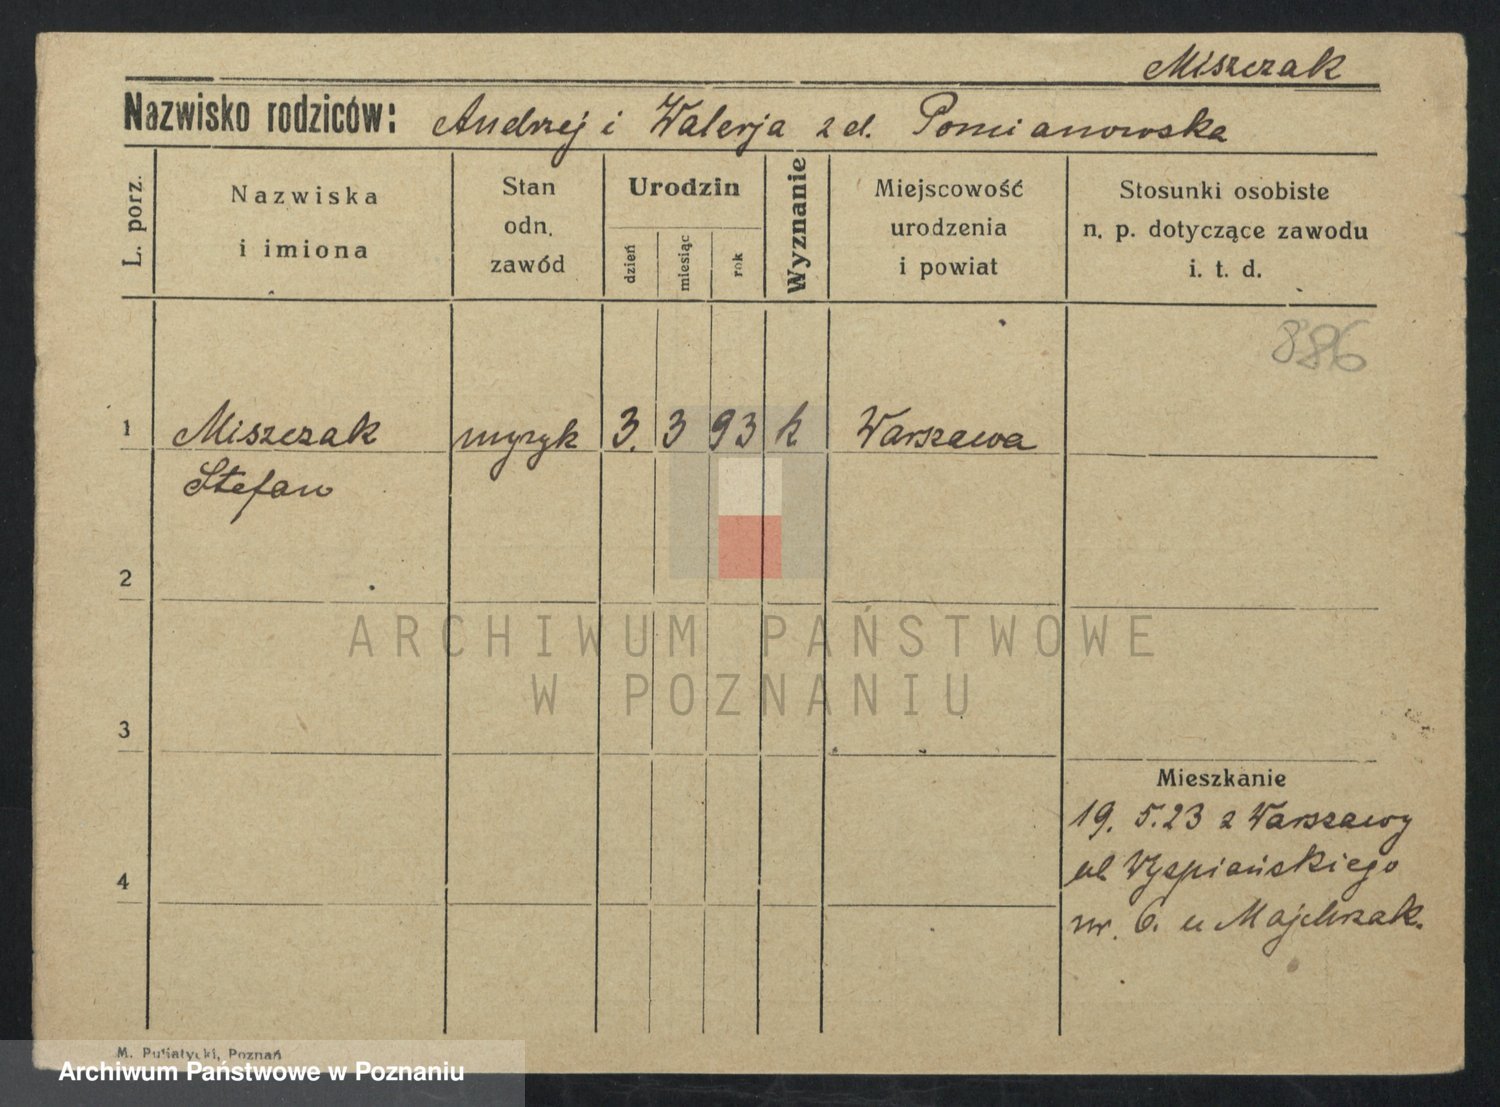 Miszczak
Nazwisko rodziców: Andrzej i Walerja z d. Pomianowska
L. porz.
Nazwiska
i imiona
Stan
odn.
zawód
Urodzin
dzień
miesiąc
rok
Wyznanie
Miejscowość
urodzenia
i powiat
Stosunki osobiste
n. p. dotyczące zawodu
i. t. d.
886
1 Miszczak muzyk 3. 3 93 k Warszawa
Stefan
2
ARCHIWUM PAŃSTWOWE
W POZNANIU
3
Mieszkanie
19. 5.23 z Warszawy
4
ul Wyspiańskiego
nr. 6. u Majchrzak.
M. Putiatycki, Poznań
Archiwum Państwowe w Poznaniu